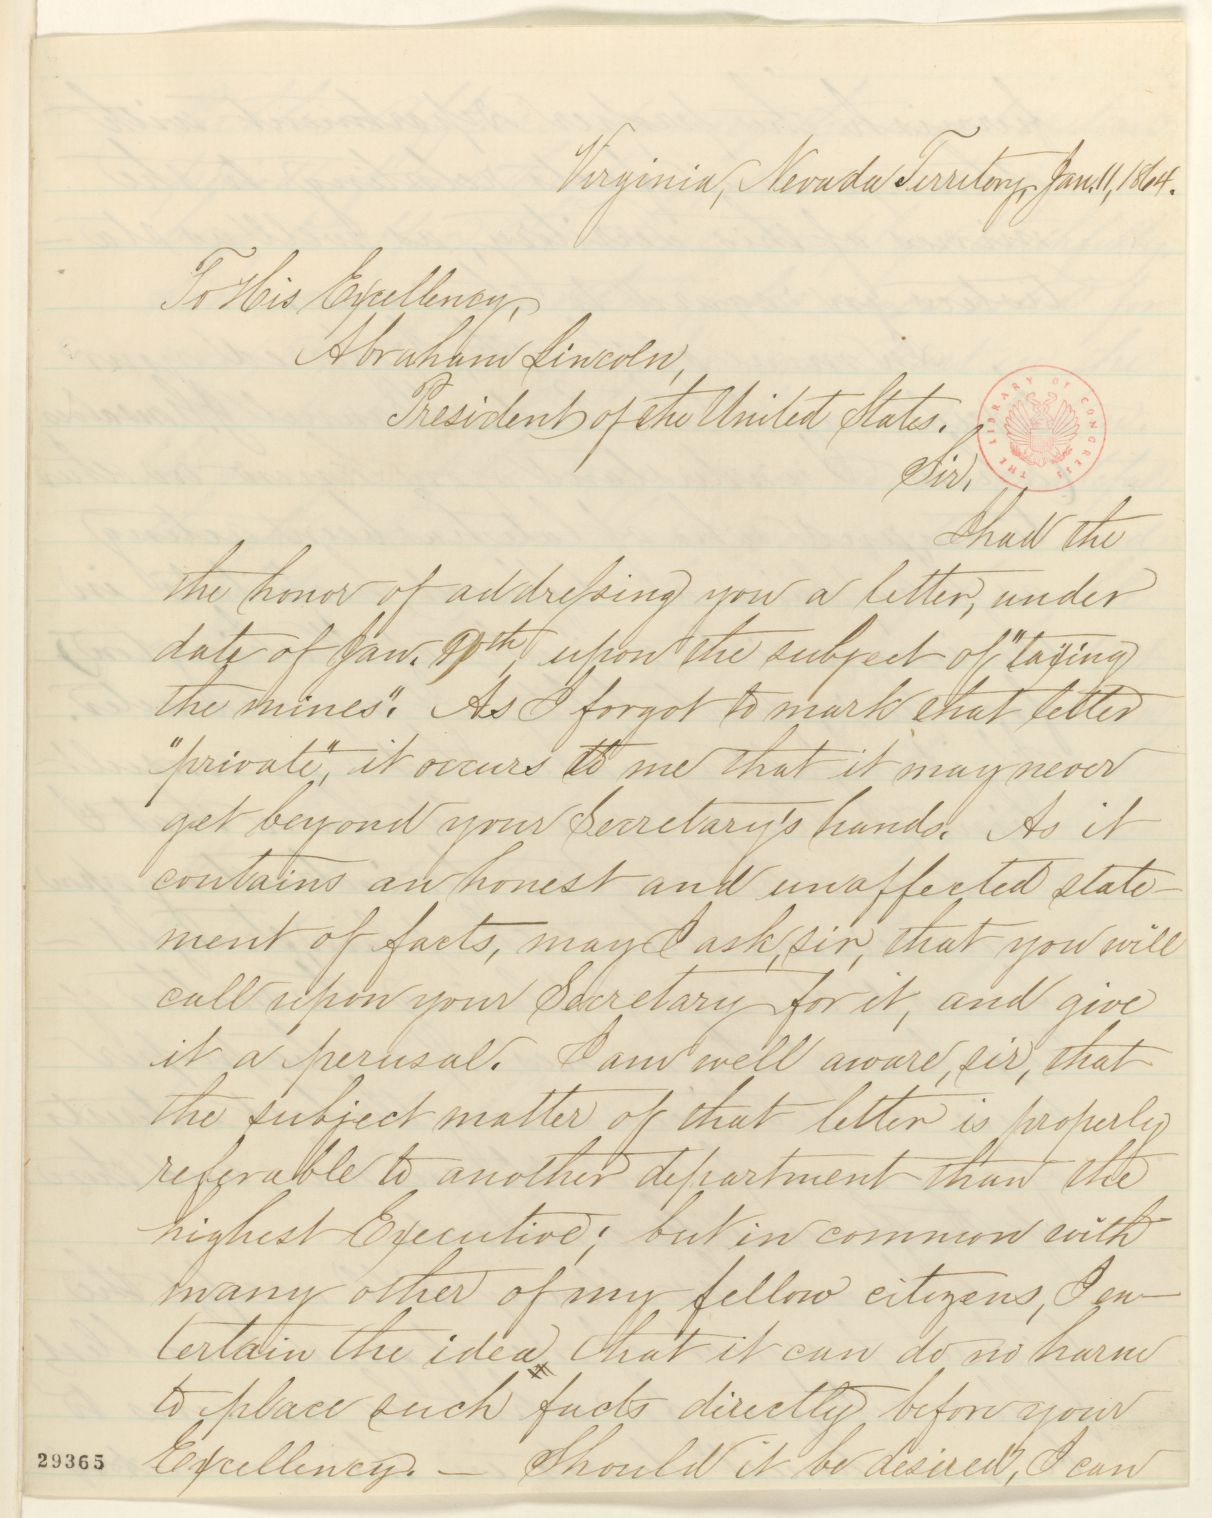 Virginia, Nevada Territory, Jan. 11, 1864.
To His Excellency,
Abraham Lincoln,
President of the United States.
THE LIBRARY OF CONGRESS
Sir,
I had the
the honor of addressing you a letter, under
date of Jan. 9th, upon the subject of "taxing
the mines". As I forgot to mark that letter
"private", it occurs to me that it may never
get beyond your Secretary's hands. As it
contains an honest and unaffected state-
ment of facts, may I ask, sir, that you will
call upon your Secretary for it, and give
it a perusal. I am well aware, sir, that
the subject matter of that letter is properly
referable to another department than the
highest Executive; but in common with
many other of my fellow citizens, I en-
tertain the idea that it can do no harm
to place such facts directly before your
Excellency. — Should it be desired, I can
29365